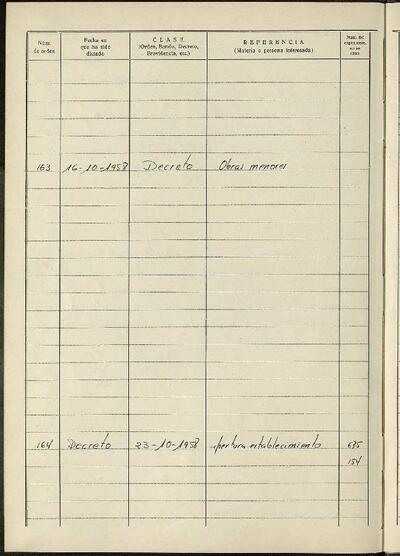 Núm. de orden
Fecha en que ha sido dictado
CLASE (Orden, Bando, Decreto, Providencia, etc.)
REFERENCIA (Materia o persona interesada)
Núm. de
163 16-10-1958 Decreto Obras menores
164 Decreto 23-10-1958 apertura establecimiento 675
154